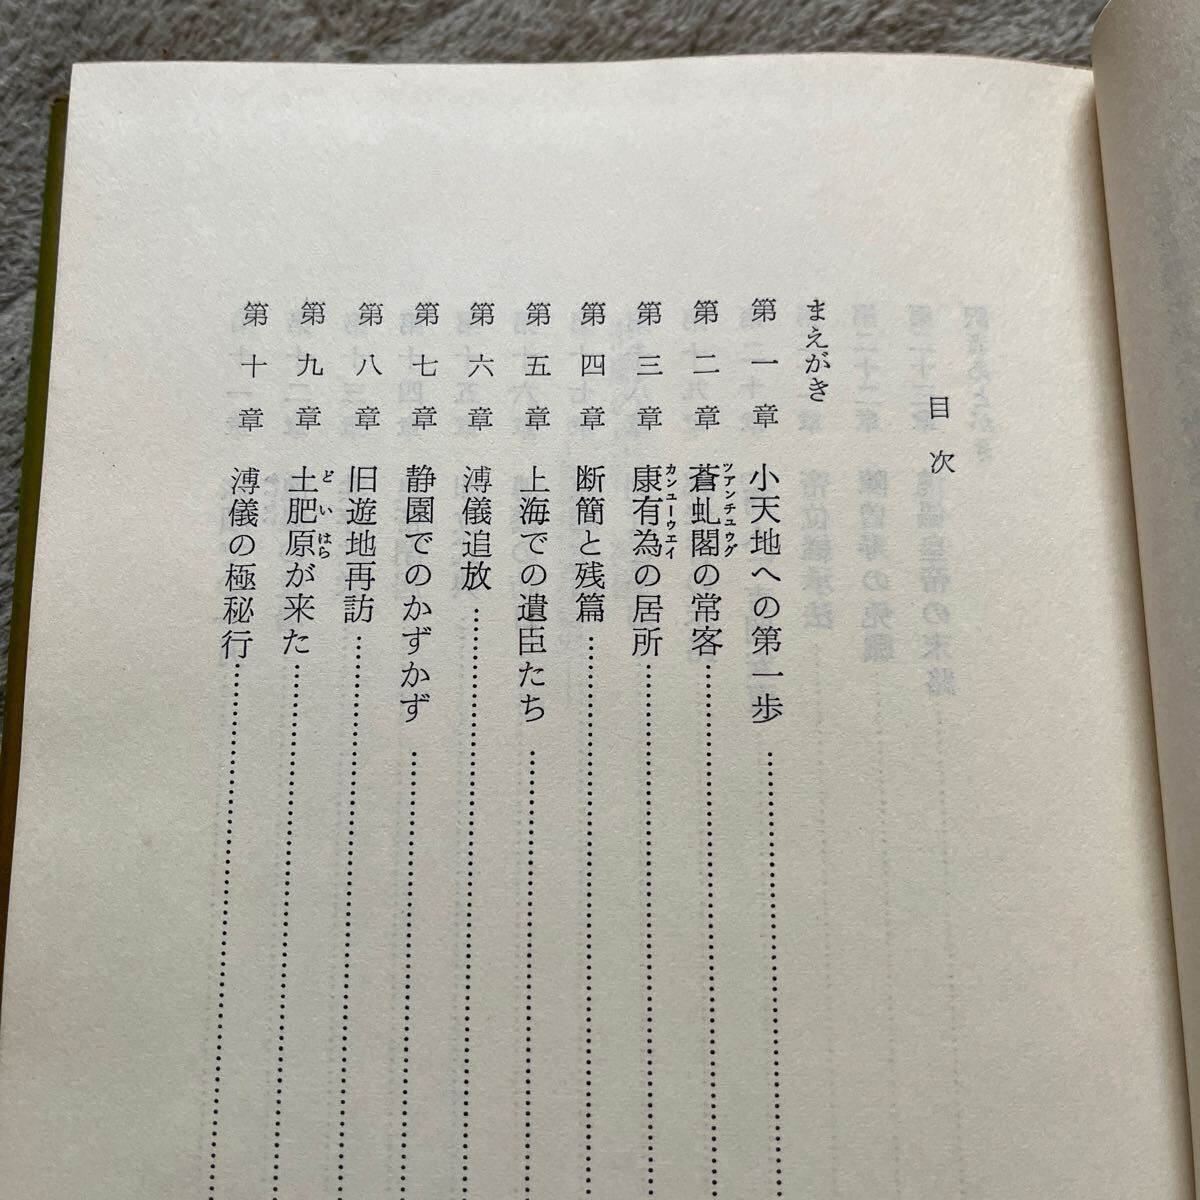 目次
まえがき
第一章 小天地への第一歩
第二章 蒼虬閣の常客
ツアンチユウグ
第三章 康有為の居所
カンユーウエイ
第四章 断簡と残篇
第五章 上海での遺臣たち
第六章 溥儀追放
第七章 静園でのかずかず
第八章 旧遊地再訪
第九章 土肥原が来た
どいはら
第十章 溥儀の極秘行